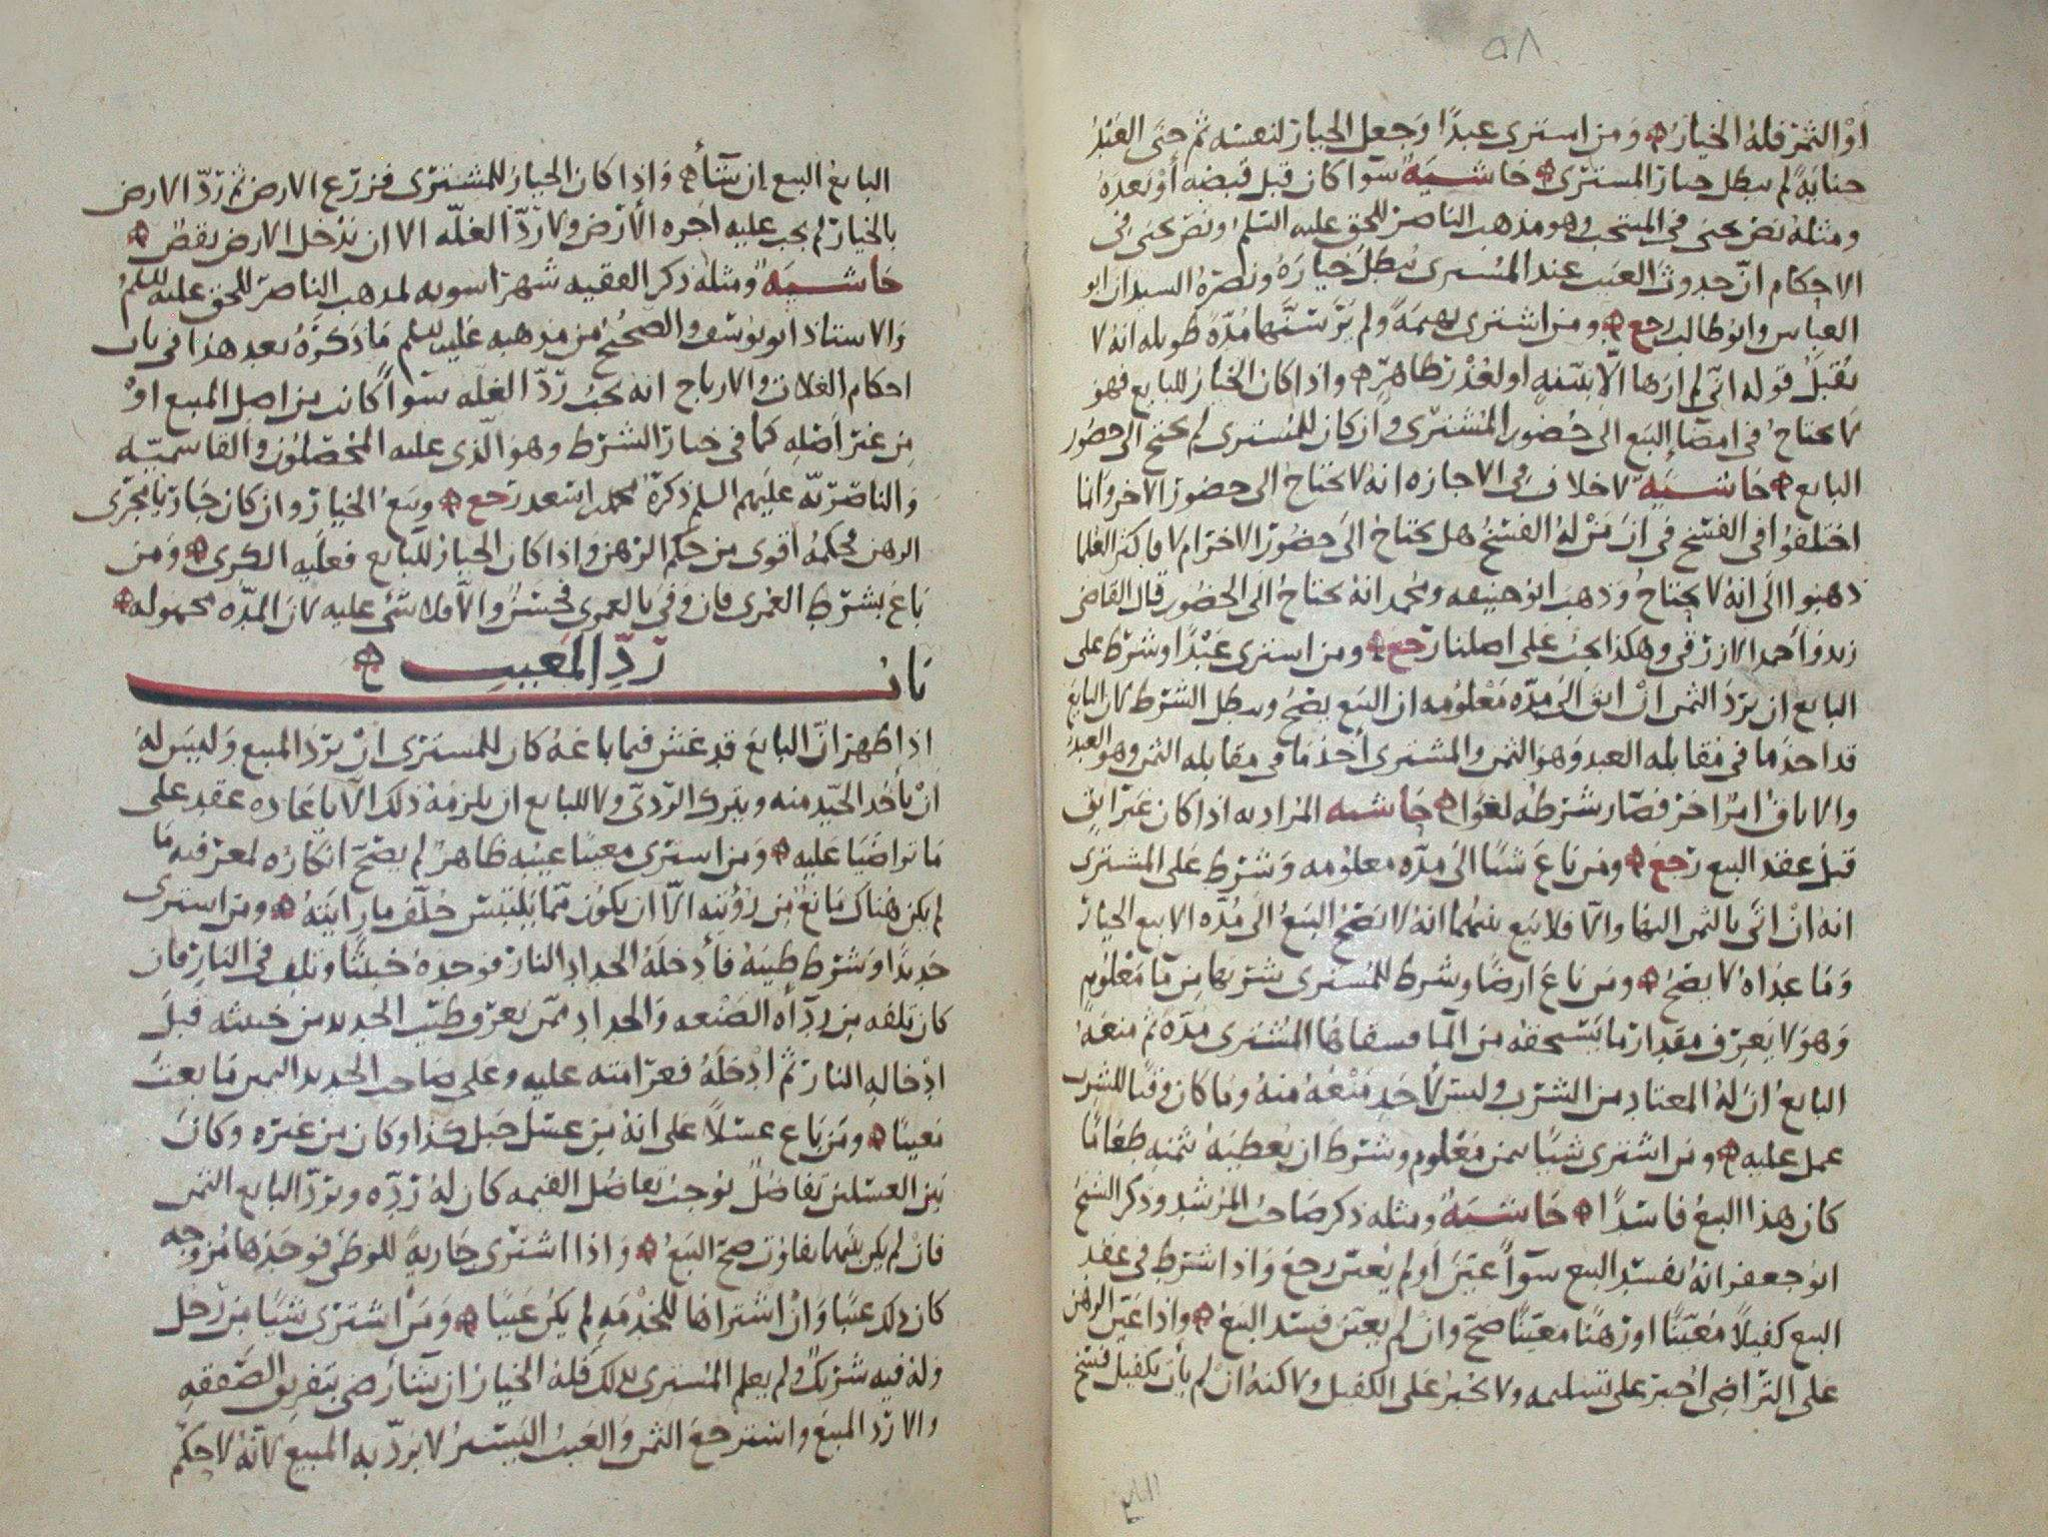 ٥٨
او الثمر فله الخيار ومن اشترى عبدًا وجعل الخيار لنفسه ثم جنى العبد
جنايةً لم يبطل خيار المشترى حاشيه سوا كان قبل قبضه أو بعده
ومثله نص يحيى فى المنتخب وهو مذهب الناصر للحق عليه السلم ونص يحيى فى
الاحكام انّ حدوث العيب عند المشترى يبطل خيارَه ونصره السيدان ابو
العباس وابو طالب رجع ومن اشترى بهيمةً ولم يَرَ سنّها مُدّةً طويله انه لا
يُقبل قوله انى لم ارها الّا بنيته او لعُذر ظاهرٍ واذا كان الخيار للبايع فهو
لا يحتاج فى امضا البيع الى حضور المشترى وان كان للمشترى لم يحتج الى حضور
البايع حاشيه لا خلاف فى الاجازه انه لا يحتاج الى حضور الاخر وانما
اختلفوا فى الفسخ فى ان مَنْ له الفسخ هل يحتاج الى حضور الاخر ام لا فاكثر العلما
ذهبوا الى انه لا يحتاج وذهب ابو حنيفه ومحمد انه يحتاج الى الحضور قال القاضى
زيد وأحمد الازرقى وهكذا يجب على اصلنا رجع ومن اشترى عَبْدًا وشرط على
البايع ان يردّ الثمن انْ ابق الى مدّه مَعْلومه ان البيع يصحّ ويبطل الشرط لان البايع
قد اخذ ما فى مقابله العبد وهو الثمن والمشترى أخذ ما فى مقابله الثمن وهو العبد
والاباق امرٌ اخر فصار شرطه لغوًا حاشيه المراد به اذا كان غير ابقٍ
قبل عقد البيع رجع ومن باع شيًا الى مدّه معلومه وشرط على المشترى
انه انْ اتى بالثمن اليها والّا فلا بيع بينهما انه لا يصحّ البيعُ الى مُدّه الا بيع الخيار
وما عداه لا يصحّ ومن باع ارضًا وشرط للمشترى شربها من مآ مَعْلومٍ
وهو لا يعرف مقدار ما يستحقه من المآ فسقاها المشترى مُدّةً ثم منعَه
البايع انّ له المعتاد من الشرب وليس لأحدٍ مَنْعُه منه وما كان وقتًا للشرب
عمل عليه ومن اشترى شيًا بثمن مَعْلومٍ وشرط ان يعطيه بثمنه طعامًا
كان هذا البيع فاسدًا حاشيه ومثله ذكر صاحب المرشد وذكر الشيخ
ابو جعفر انه يفسد البيع سوآً عيّن أو لم يُعيّن رجع واذا اشترط فى عقد
البيع كفيلاً مُعيّنًا او رهنًا معينًا صحّ وانْ لم يعيّن فسد البيعُ واذا عيّن الرهن
على التراضى اُجبر على تسليمه ولا يُجبر على الكفيل ولاكنه انْ لم يأت بكفيل فسخ
البايع
البايعُ البيع إن شآء واذا كان الخيار للمشترى فزرع الارض ثم ردّ الارض
بالخيار لم يجب عليه اجره الأرض ولا ردّ الغلّه الا ان تدخل الارض نقصٌ
حاشيه ومثله ذكر الفقيه شهراسويه لمذهب الناصر للحق عليه السلم
والاستاذ ابو يوسف والصحيح من مذهبه عليه السلم ما ذكرهُ بعد هذا فى باب
احكام الغلات والارباح انه يجب ردّ الغلّه سوآً كانت من اصل المبيع اوْ
مِن غير اصله كما فى خيار الشرط وهو الّذى عليه المحصّلون والقاسميّه
والناصريّه عليهم السلم ذكره محمد بن اسعد رجع وبيع الخيار وان كان جاريًا مجرى
الرهن فحكمه أقوى من حكم الرهن واذا كان الخيار للبايع فعليه الكرى ومن
باع بشرط العمرى فان وفى بالعمرى فحَسَنٌ والّا فلا شى عليه لانّ المدّه مجهوله
باب ردّ المعيب
اذا ظهر انّ البايع قد غش فيما باعه كان للمشترى انْ يردّ المبيع وليس له
انْ يأخذ الجيّد منه ويترك الردىّ ولا للبايع ان يلزمه ذلك الّا باعاده عقد على
ما تراضيا عليه ومن اشترى معيبًا عيبه ظاهرٌ لم يصحّ انكاره لمعرفته ما
لم يكن هناك مانع من رؤيته الّا ان يكون مّما يلتبس حلف ما رايته ومن اشترى
حديدًا وشرط طيبه فأدخله الحداد النار فوجده خبيثًا وتلف فى النار فان
كان تلفه من ردآه الصنعه والحداد ممّن يعرف طيّب الحديد من خبيثه قبل
ادخاله النار ثم ادخله فغرامته عليه وعلى صاحب الحديد الثمن ما يعتبُ
معيبًا ومن باع عسلاً على انه من عسل جبل كذا وكان من غيره وكان
بين العسلين تفاضلٌ يوجب تفاضل القيمه كان له ردّه ويردّ البايع الثمن
فانْ لم يكن بينهما تفاوت صحّ البيعُ واذا اشترى جاريةً للوطى فوجدها مُزوجه
كان ذلك عيبًا وَانْ اشتراها للخدمهِ لم يكن عيبًا ومن اشترى شيًا من رجل
وله فيه شريكٌ ولم يعلم المشترى بذلك فله الخيار ان شآ رضى بتفريق الصفقه
والا ردّ المبيع واسترجع الثمن والعيبُ اليسيرُ لا يردّ به المبيع لأنّه لا حكم